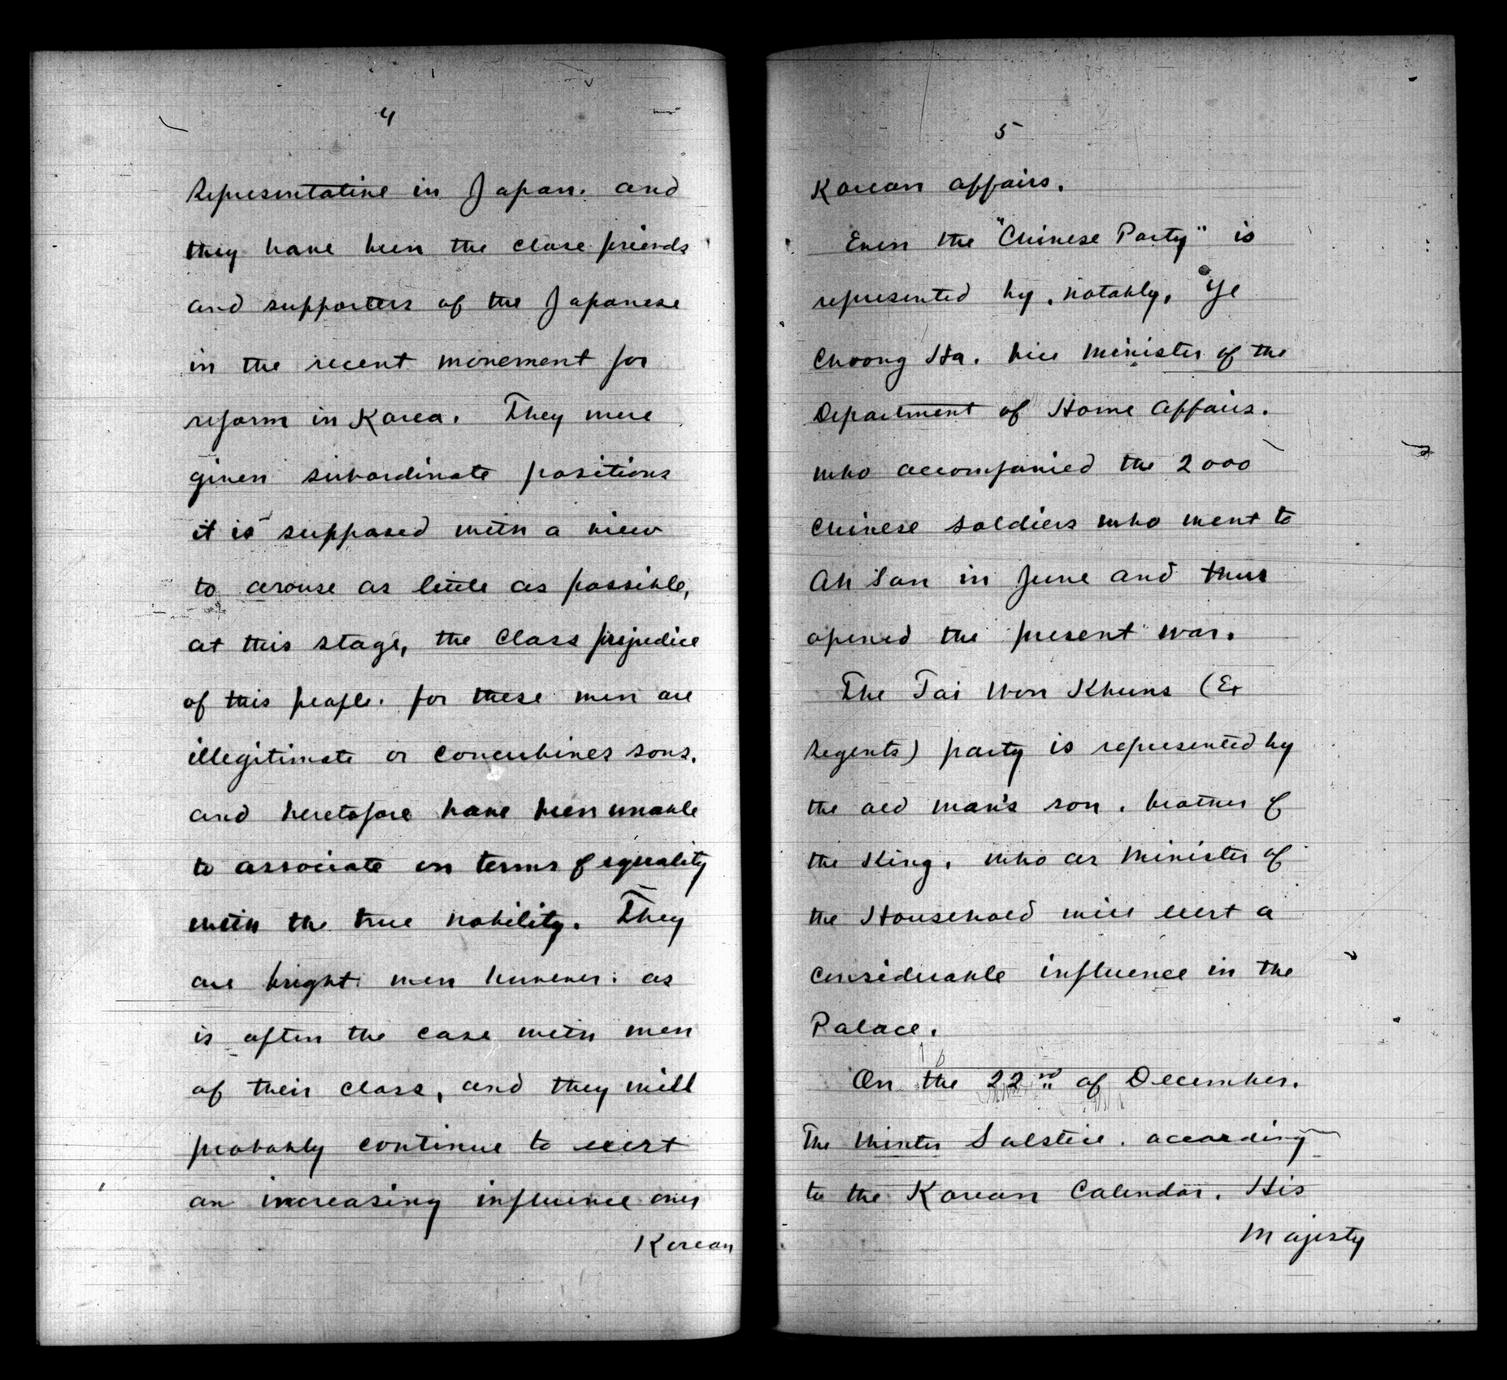 4
Representative in Japan. and
they have been the close friends
and supporters of the Japanese
in the recent movement for
reform in Korea. They were
given subordinate positions
it is supposed with a view
to arouse as little as possible,
at this stage, the class prejudice
of this people. for these men are
illegitimate or concubines sons.
and heretofore have been unable
to associate on terms of equality
with the true nobility. They
are bright men however: as
is often the case with men
of their class, and they will
probably continue to exert
an increasing influence over
Korean
5
Korean affairs.
Even the "Chinese Party" is
represented by, notably, Ye
Choong Ha. Vice Minister of the
Department of Home Affairs.
who accompanied the 2000
Chinese soldiers who went to
Ah San in June and thus
opened the present war.
The Tai Won Khuns (Ex
Regents) party is represented by
the old man's son, brother of
the King, who as Minister of
the Household will exert a
considerable influence in the
Palace.
On the 22nd of December.
The Winter Solstice. according
to the Korean Calendar. His
Majesty